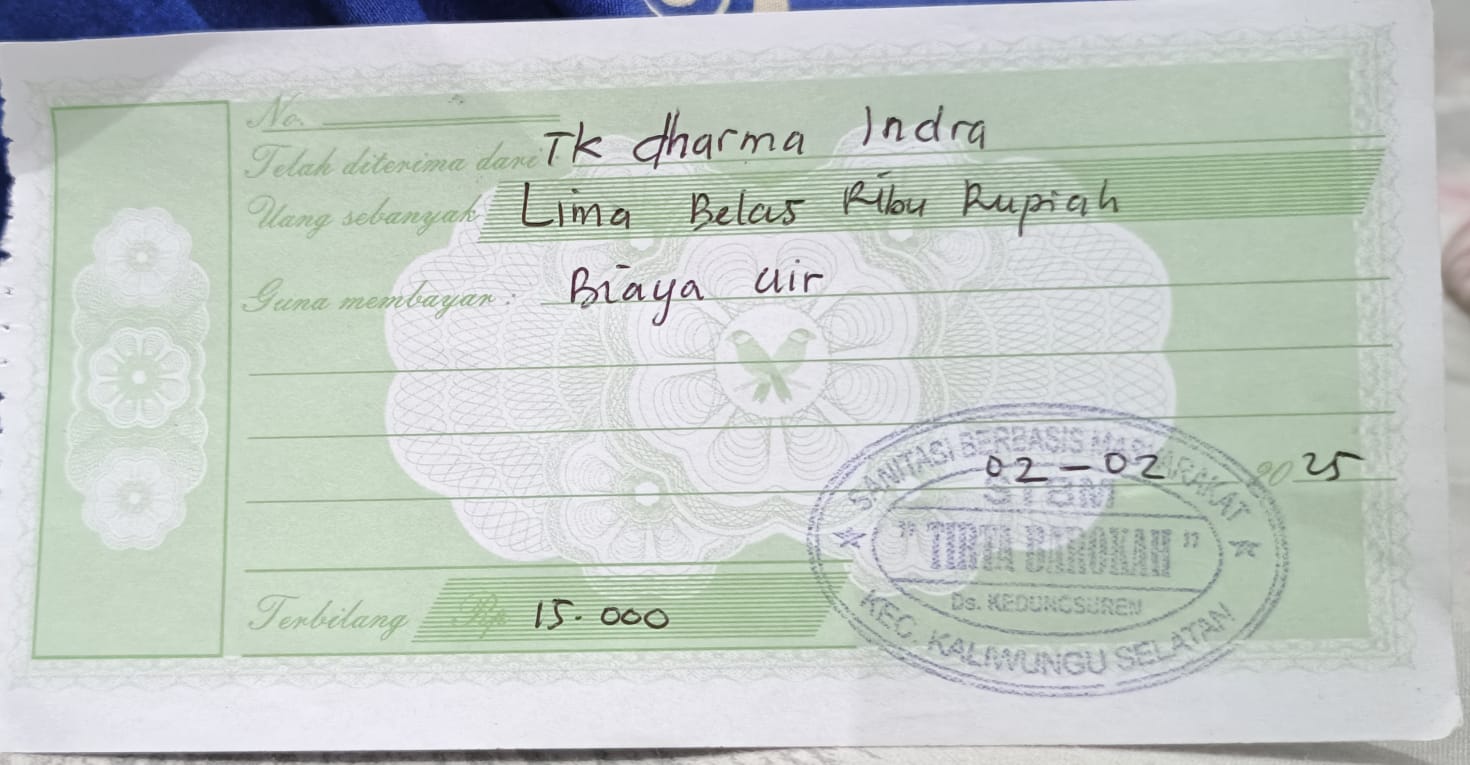 No.
Telah diterima dari TK dharma Indra
Uang sebanyak Lima Belas Ribu Rupiah
Guna membayar : Biaya air
02-02 2025
Terbilang Rp 15.000
SANITASI BERBASIS MASYARAKAT
STBM
" TIRTA BAROKAH "
Ds. KEDUNGSUREN
KEC. KALIWUNGU SELATAN